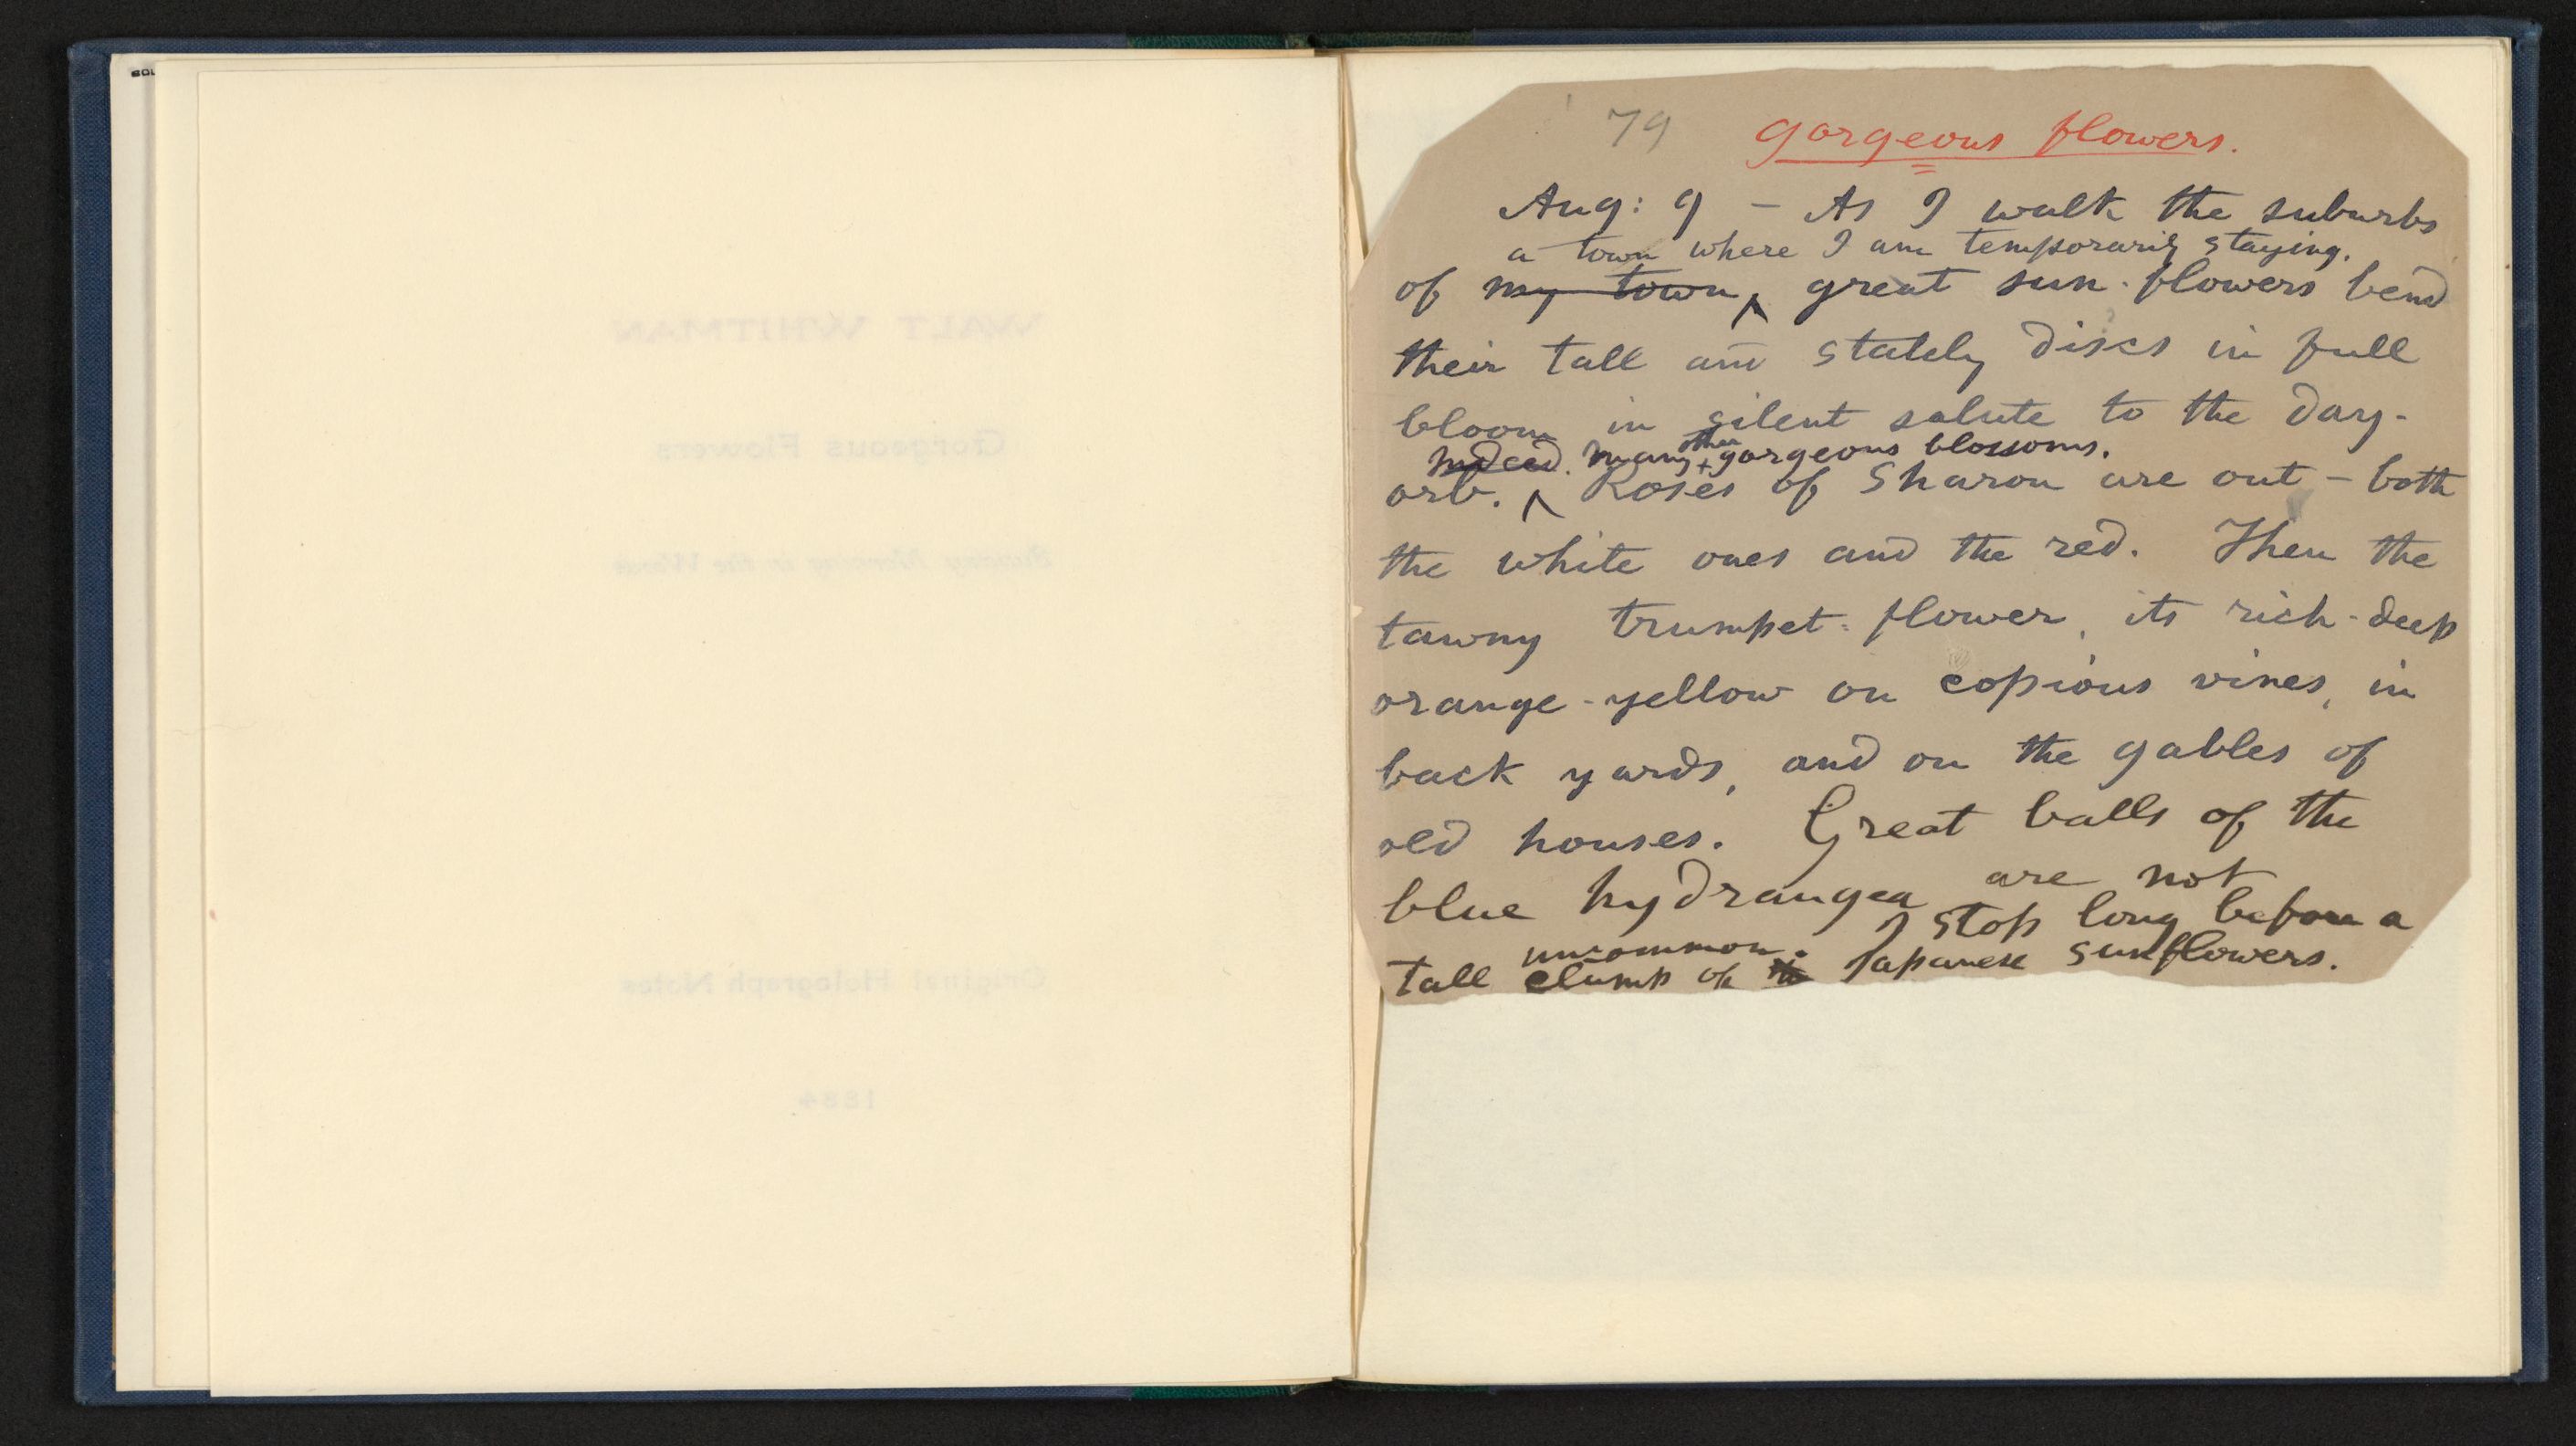 WALT WHITMAN
Gorgeous Flowers
Sunday Morning in the Woods
Original Holograph Notes
1884
79 gorgeous flowers.
Aug: 9 – As I walk the suburbs
a town where I am temporarily staying.
of my town, great sun-flowers bend
their tall and stately discs in full
bloom in silent salute to the day-
other
indeed. many + gorgeous blossoms.
orb. Roses of Sharon are out – both
the white ones and the red. Then the
tawny trumpet-flower, its rich-deep
orange-yellow on copious vines, in
back yards, and on the gables of
old houses. Great balls of the
blue hydrangea are not
uncommon. I stop long before a
tall clump of the Japanese sunflowers.